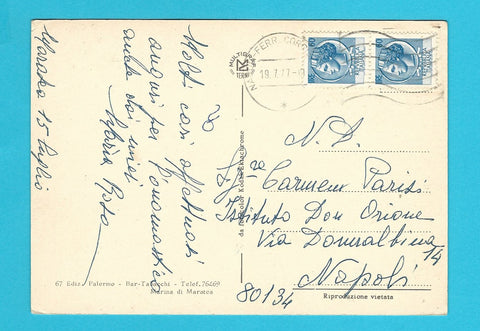 Maratea 15 luglio
Molti cari affettuosi
auguri per l'onomastico
anche dai miei
Maria Rosa
67 Ediz. Palermo - Bar-Tabacchi - Telef. 76469
Marina di Maratea
MULTIGRAF
TERNI
da fotocolor Kodak Ektachrome
19.7.77
N. D.
Sig.ra Carmen Parisi
Istituto Don Orione
Via Donnalbina 14
Napoli
80134
Riproduzione vietata